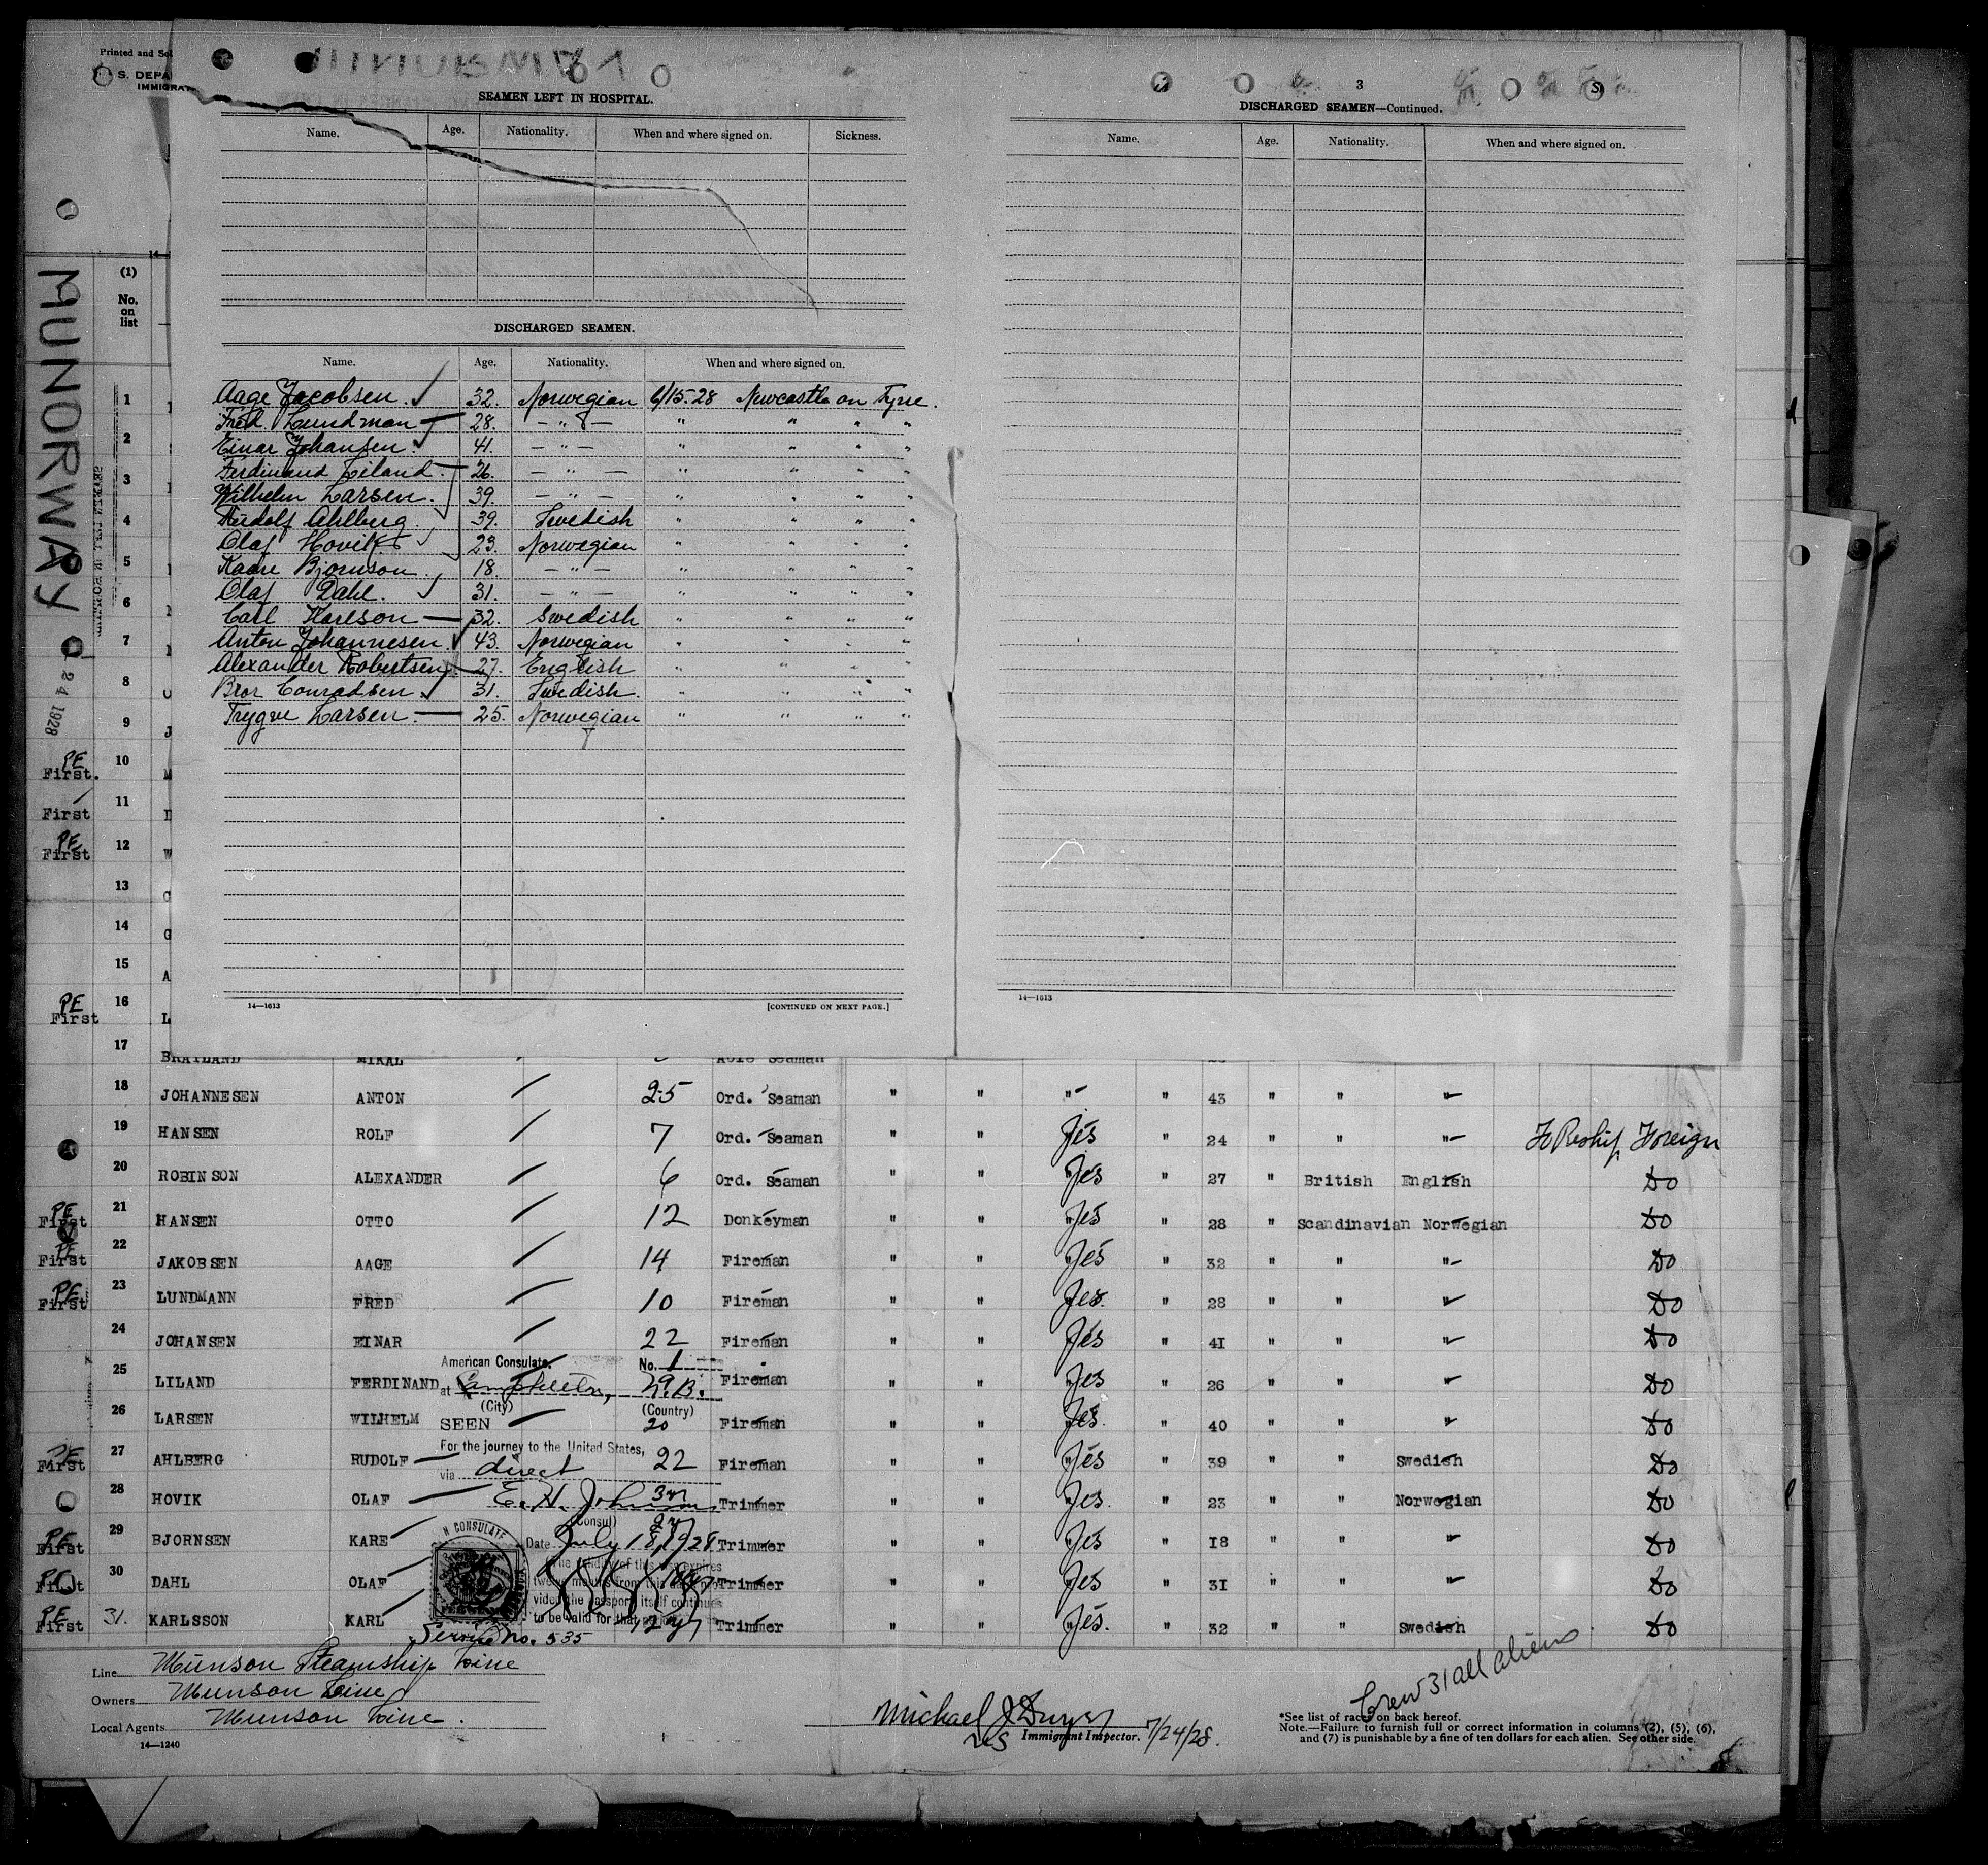 Printed and Sol
S. DEPA
IMMIGRAT
MUNORWAY
24 1928
SEAMEN LEFT IN HOSPITAL.
Name. Age. Nationality. When and where signed on. Sickness.
DISCHARGED SEAMEN.
Name. Age. Nationality. When and where signed on.
Aage Jacobsen. 32. Norwegian 6/15-28 Newcastle on Tyne.
Fred. Lundman 28. — " — " " " "
Einar Johansen. 41. — " — " " " "
Ferdinand Leland. 26. — " — " " " "
Wilhelm Larsen. 39. — " — " " " "
Rudolf Ahlberg. 39. Swedish " " " "
Olaf Hovik 23. Norwegian " " " "
Kaare Bjornson. 18. — " — " " " "
Olaf Dahl. 31. — " — " " " "
Carl Karlson 32. Swedish " " " "
Anton Johannesen. 43. Norwegian " " " "
Alexander Robertsen 27. English " " " "
Bror Conradsen. 31. Swedish. " " " "
Trygve Larsen. 25. Norwegian " " " "
14—1613 [CONTINUED ON NEXT PAGE.]
3
DISCHARGED SEAMEN—Continued.
Name. Age. Nationality. When and where signed on.
14—1613
(1)
No.
on
list
1
2
3
4
5
6
7
8
9
PE First. 10
First 11
PE First 12
13
14
15
PE First 16
17 BRATLAND MIKAL Able Seaman
18 JOHANNESEN ANTON 25 Ord. Seaman " " " " 43 " " "
19 HANSEN ROLF 7 Ord. Seaman " " Yes " 24 " " " To Reship Foreign
20 ROBINSON ALEXANDER 6 Ord. Seaman " " Yes " 27 " British English Do
PE First 21 HANSEN OTTO 12 Donkeyman " " Yes " 28 " Scandinavian Norwegian Do
PE First 22 JAKOBSEN AAGE 14 Fireman " " Yes " 32 " " " Do
PE First 23 LUNDMANN FRED 10 Fireman " " Yes. " 28 " " " Do
24 JOHANSEN EINAR 22 Fireman " " Yes " 41 " " " Do
25 LILAND FERDINAND Fireman " " Yes " 26 " " " Do
26 LARSEN WILHELM 20 Fireman " " Yes. " 40 " " " Do
PE First 27 AHLBERG RUDOLF 22 Fireman " " Yes " 39 " " Swedish Do
28 HOVIK OLAF Trimmer " " Yes. " 23 " " Norwegian Do
PE First 29 BJORNSEN KARE Trimmer " " Yes " 18 " " " Do
First 30 DAHL OLAF Trimmer " " Yes " 31 " " " Do
PE First 31. KARLSSON KARL Trimmer " " Yes. " 32 " " Swedish Do
American Consulate. No. 1
at Campbellton, N.B.
(City) (Country)
SEEN
For the journey to the United States,
via direct
E. H. Johnson
(Consul)
Date July 18, 1928
twelve months from this date
vided the passport itself continues
to be valid for that
N CONSULATE
Service No. 535
Line Munson Steamship Line
Owners Munson Line
Local Agents Munson Line.
14—1240
Michael J Dwyer
Immigrant Inspector. 7/24/28.
Crew 31 all aliens.
*See list of races on back hereof.
Note.—Failure to furnish full or correct information in columns (2), (5), (6),
and (7) is punishable by a fine of ten dollars for each alien. See other side.